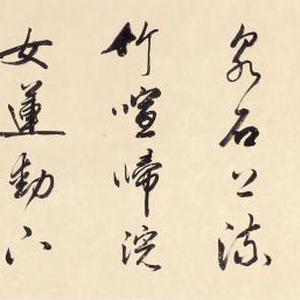 泉石上流
竹喧歸浣
女蓮動下